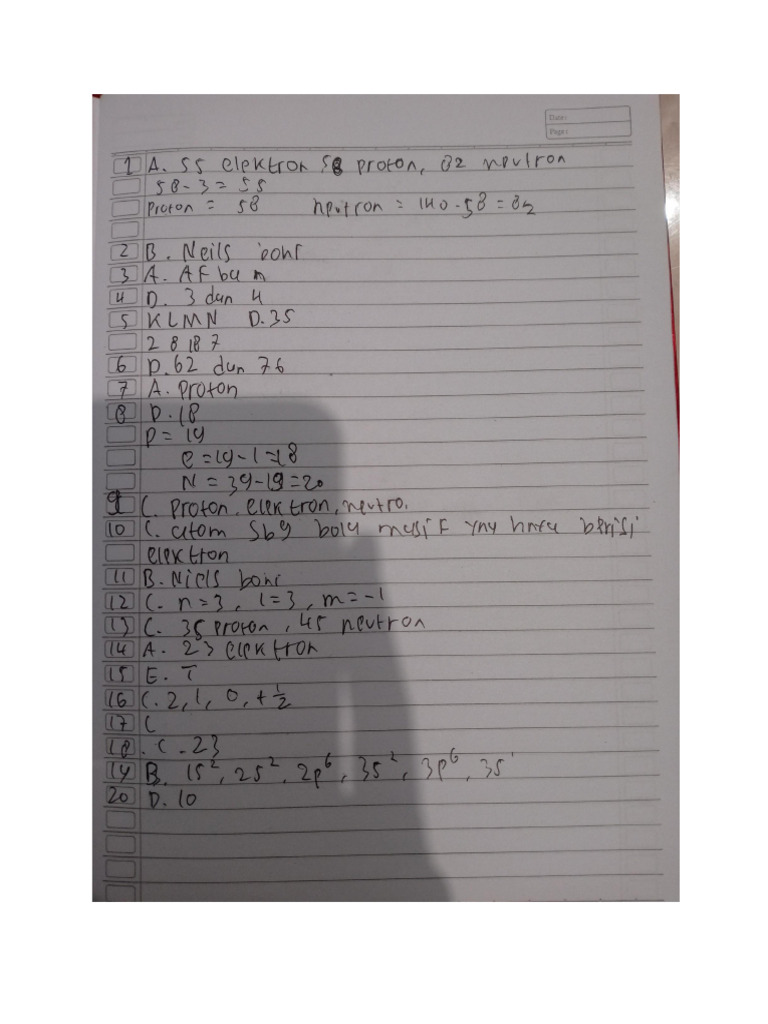 Date:
Page:
1 A. 55 elektron 58 proton, 82 neutron
58-3 = 55
Proton = 58 neutron = 140-58 = 82
2 B. Neils bohr
3 A. AF ba m
4 D. 3 dan 4
5 KLMN D. 35
2 8 18 7
6 D. 62 dan 76
7 A. Proton
8 D. 18
P = 19
e = 19-1 = 18
N = 39-19 = 20
9 C. Proton, elektron, neutro.
10 C. atom sbg bola masif yng hnya berisi
elektron
11 B. Niels bohr
12 C. n = 3, l = 3, m = -1
13 C. 35 proton, 45 neutron
14 A. 23 elektron
15 E. T
16 C. 2, 1, 0, + 1/2
17 C
18. C. 23
19 B. 1s², 2s², 2p⁶, 3s², 3p⁶, 3s¹
20 D. 10